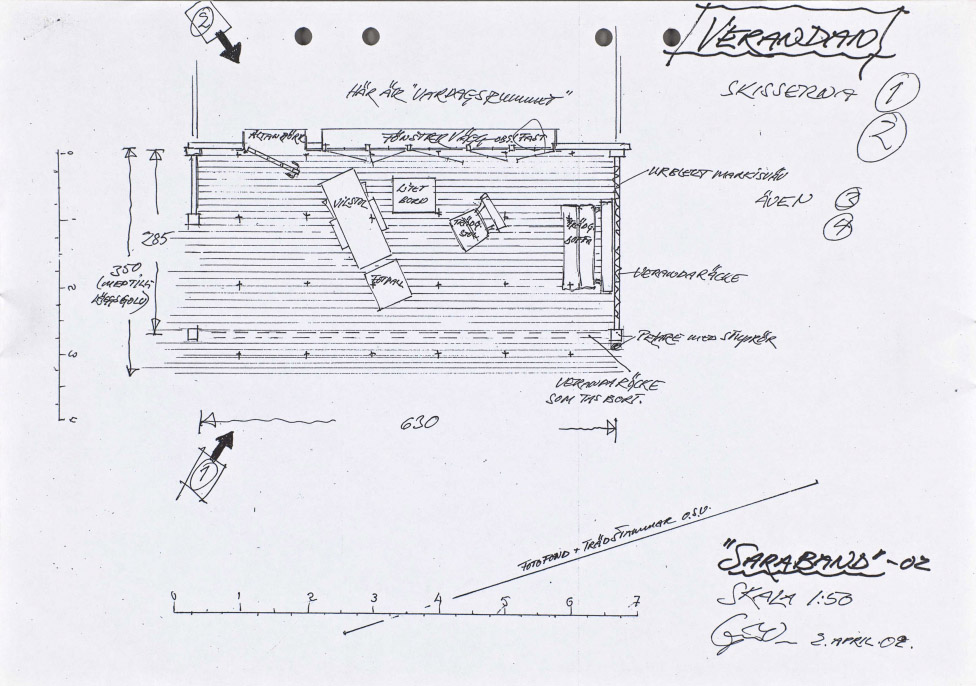 2
VERANDAN
SKISSERNA 1
2
HÄR ÄR "VARDAGSRUMMET"
ALTANDÖRR
FÖNSTER VÄGG OBS (FAST
URBLEKT MARKISVÄV
ÄVEN 3
4
VILSTOL
LITET
BORD
TRÄDG.
STOL
TRÄDG.
SOFFA
285
350
(MED TILL-
LÄGGSGOLV)
VERANDARÄCKE
PALL
PELARE MED STUPRÖR
VERANDARÄCKE
SOM TAS BORT.
0
1
2
3
630
1
FOTOFOND + TRÄDSTAMMAR O.S.V.
0 1 2 3 4 5 6 7
"SARABAND"-02
SKALA 1:50
2. APRIL. 02.